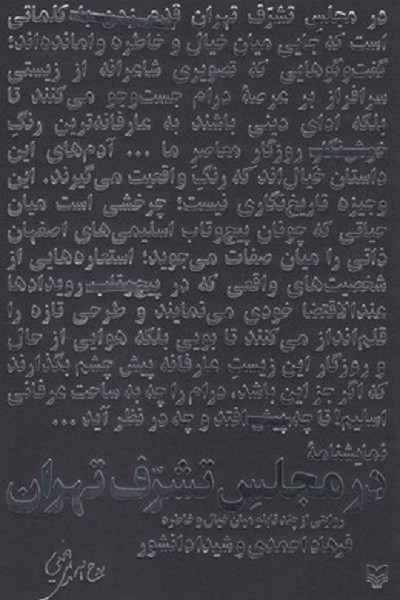 در مجلسِ تشرّف تهران کلماتی
است که جایی میان خیال و خاطره وامانده‌اند؛
گفت‌وگوهایی که تصویری شاعرانه از زیستی
سرافراز بر عرصهٔ درام جست‌وجو می‌کنند تا
بلکه ادای دینی باشند به عارفانه‌ترین رنگ
روزگار معاصر ما ... آدم‌های این
داستان خیال‌اند که رنگِ واقعیت می‌گیرند. این
وجیزه تاریخ‌نگاری نیست؛ چرخشی است میان
حیاتی که چونان پیچ‌وتاب اسلیمی‌های اصفهان
ذاتی را میان صفات می‌جوید؛ استعاره‌هایی از
شخصیت‌های واقعی که در رویدادها
عندالاقتضا خودی می‌نمایند و طرحی تازه را
قلم‌انداز می‌کنند تا بویی بلکه هوایی از حال
و روزگار این زیستِ عارفانه پیش چشم بگذارند
که اگر جز این باشد، درام را چه به ساحت عرفانی
اسلیم؛ تا چه افتد و چه در نظر آید ...
نمایشنامهٔ
در مجلسِ تشرّف تهران
روایتی از چند تابلو میان خیال و خاطره
فرهاد احمدی و شیدا دانشور